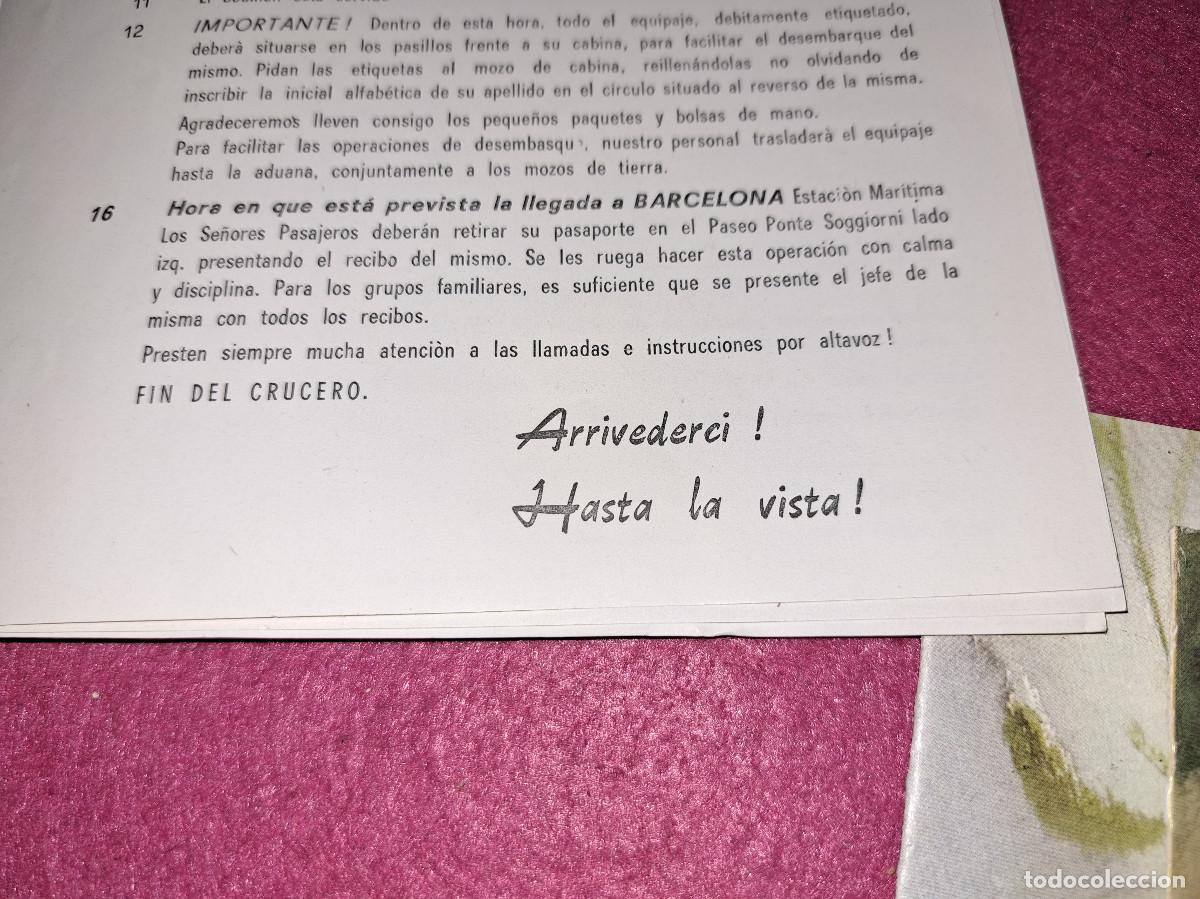 11
12 IMPORTANTE! Dentro de esta hora, todo el equipaje, debitamente etiquetado,
deberà situarse en los pasillos frente a su cabina, para facilitar el desembarque del
mismo. Pidan las etiquetas al mozo de cabina, reillenándolas no olvidando de
inscribir la inicial alfabética de su apellido en el círculo situado al reverso de la misma.
Agradeceremos lleven consigo los pequeños paquetes y bolsas de mano.
Para facilitar las operaciones de desembasqu, nuestro personal trasladarà el equipaje
hasta la aduana, conjuntamente a los mozos de tierra.
16 Hora en que está prevista la llegada a BARCELONA Estaciòn Marítima
Los Señores Pasajeros deberán retirar su pasaporte en el Paseo Ponte Soggiorni lado
izq. presentando el recibo del mismo. Se les ruega hacer esta operación con calma
y disciplina. Para los grupos familiares, es suficiente que se presente el jefe de la
misma con todos los recibos.
Presten siempre mucha atenciòn a las llamadas e instrucciones por altavoz!
FIN DEL CRUCERO.
Arrivederci !
Hasta la vista!
todocoleccion